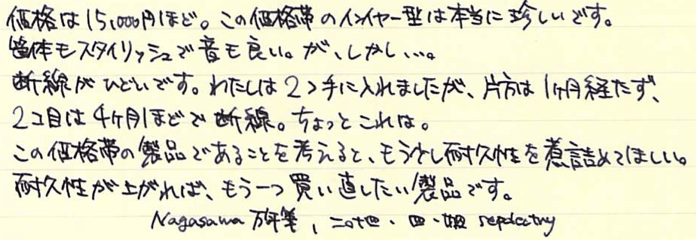 価格は15,000円ほど。この価格帯のインイヤー型は本当に珍しいです。
筐体もスタイリッシュで音も良い。が、しかし…。
断線がひどいです。わたしは2つ手に入れましたが、片方は1ヶ月経たず、
2コ目は4ヶ月ほどで断線。ちょっとこれは。
この価格帯の製品であることを考えると、もう少し耐久性を煮詰めてほしい。
耐久性が上がれば、もう一つ買い直したい製品です。
Nagasawa 万年筆,